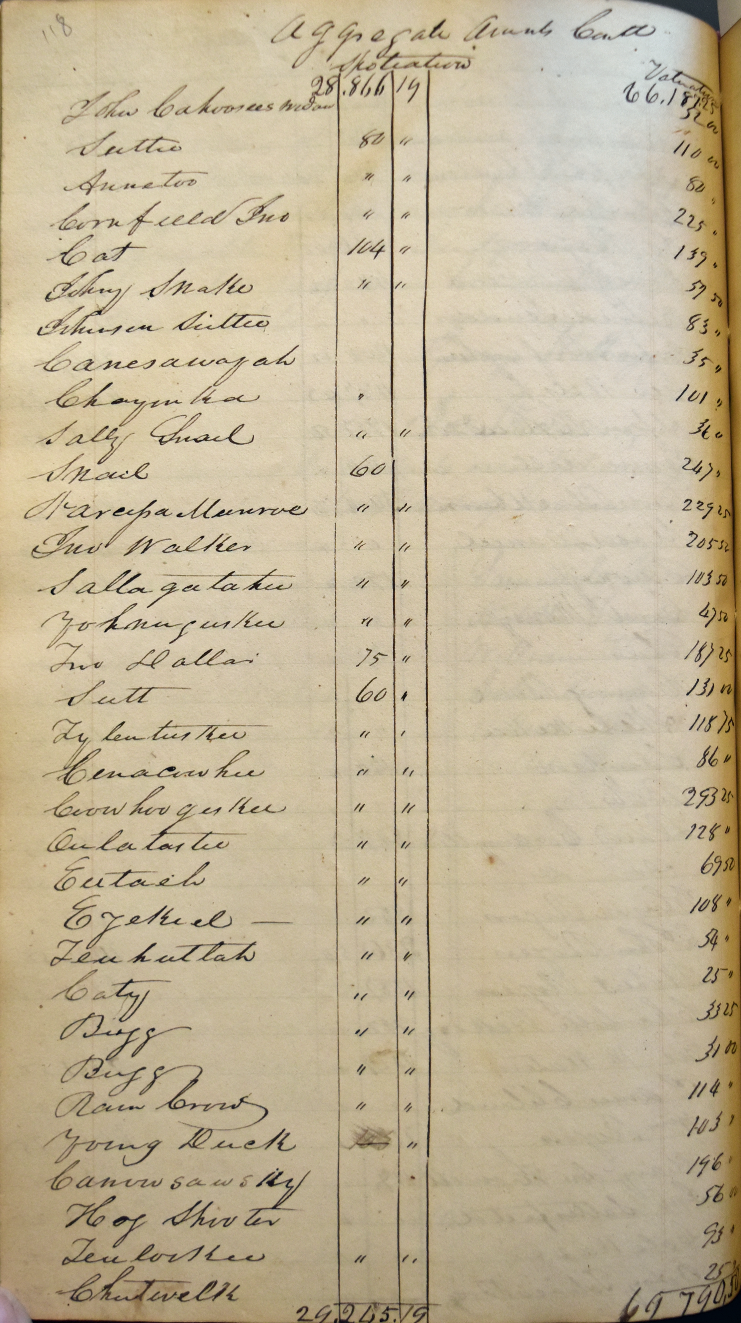 118
Aggregate Amnts Contd
Spoliation Valuation
28.866 19 66.187 25
John Cahoosees widow 52 00
Suttie 80 " 110 00
Annetoo " " 80 "
Cornfield Jno " " 225 "
Cat 104 " 139 "
Johny Snake " " 59 50
Johnson Suttie 83 "
Canesawayah 35 "
Chayouka " 101 "
Sally Snail " " 36 "
Snail 60 247 "
Narcissa Monroe " " 229 25
Jno Walker " " 205 50
Sallagatahee " " 103 50
Yohnuguskee " " 47 50
Jno Dallas 75 " 187 25
Sutt 60 " 131 00
Tylentuskee " " 118 75
Cenacowhee " " 86 "
Coowhoogeskee " " 293 25
Oulatastee " " 128 "
Eutaeh " " 69 50
Ezekiel — " " 108 "
Teuhuttah " " 54 "
Caty " " 25 "
Bugg " " 33 25
Bugg " " 31 00
Rain Crow " " 114 "
Young Duck " 103 "
Canowsawsky 196 "
Hog Shooter 56 00
Teulooskee " " 93 "
Chutwelk 25
29.265.19 69 790.50